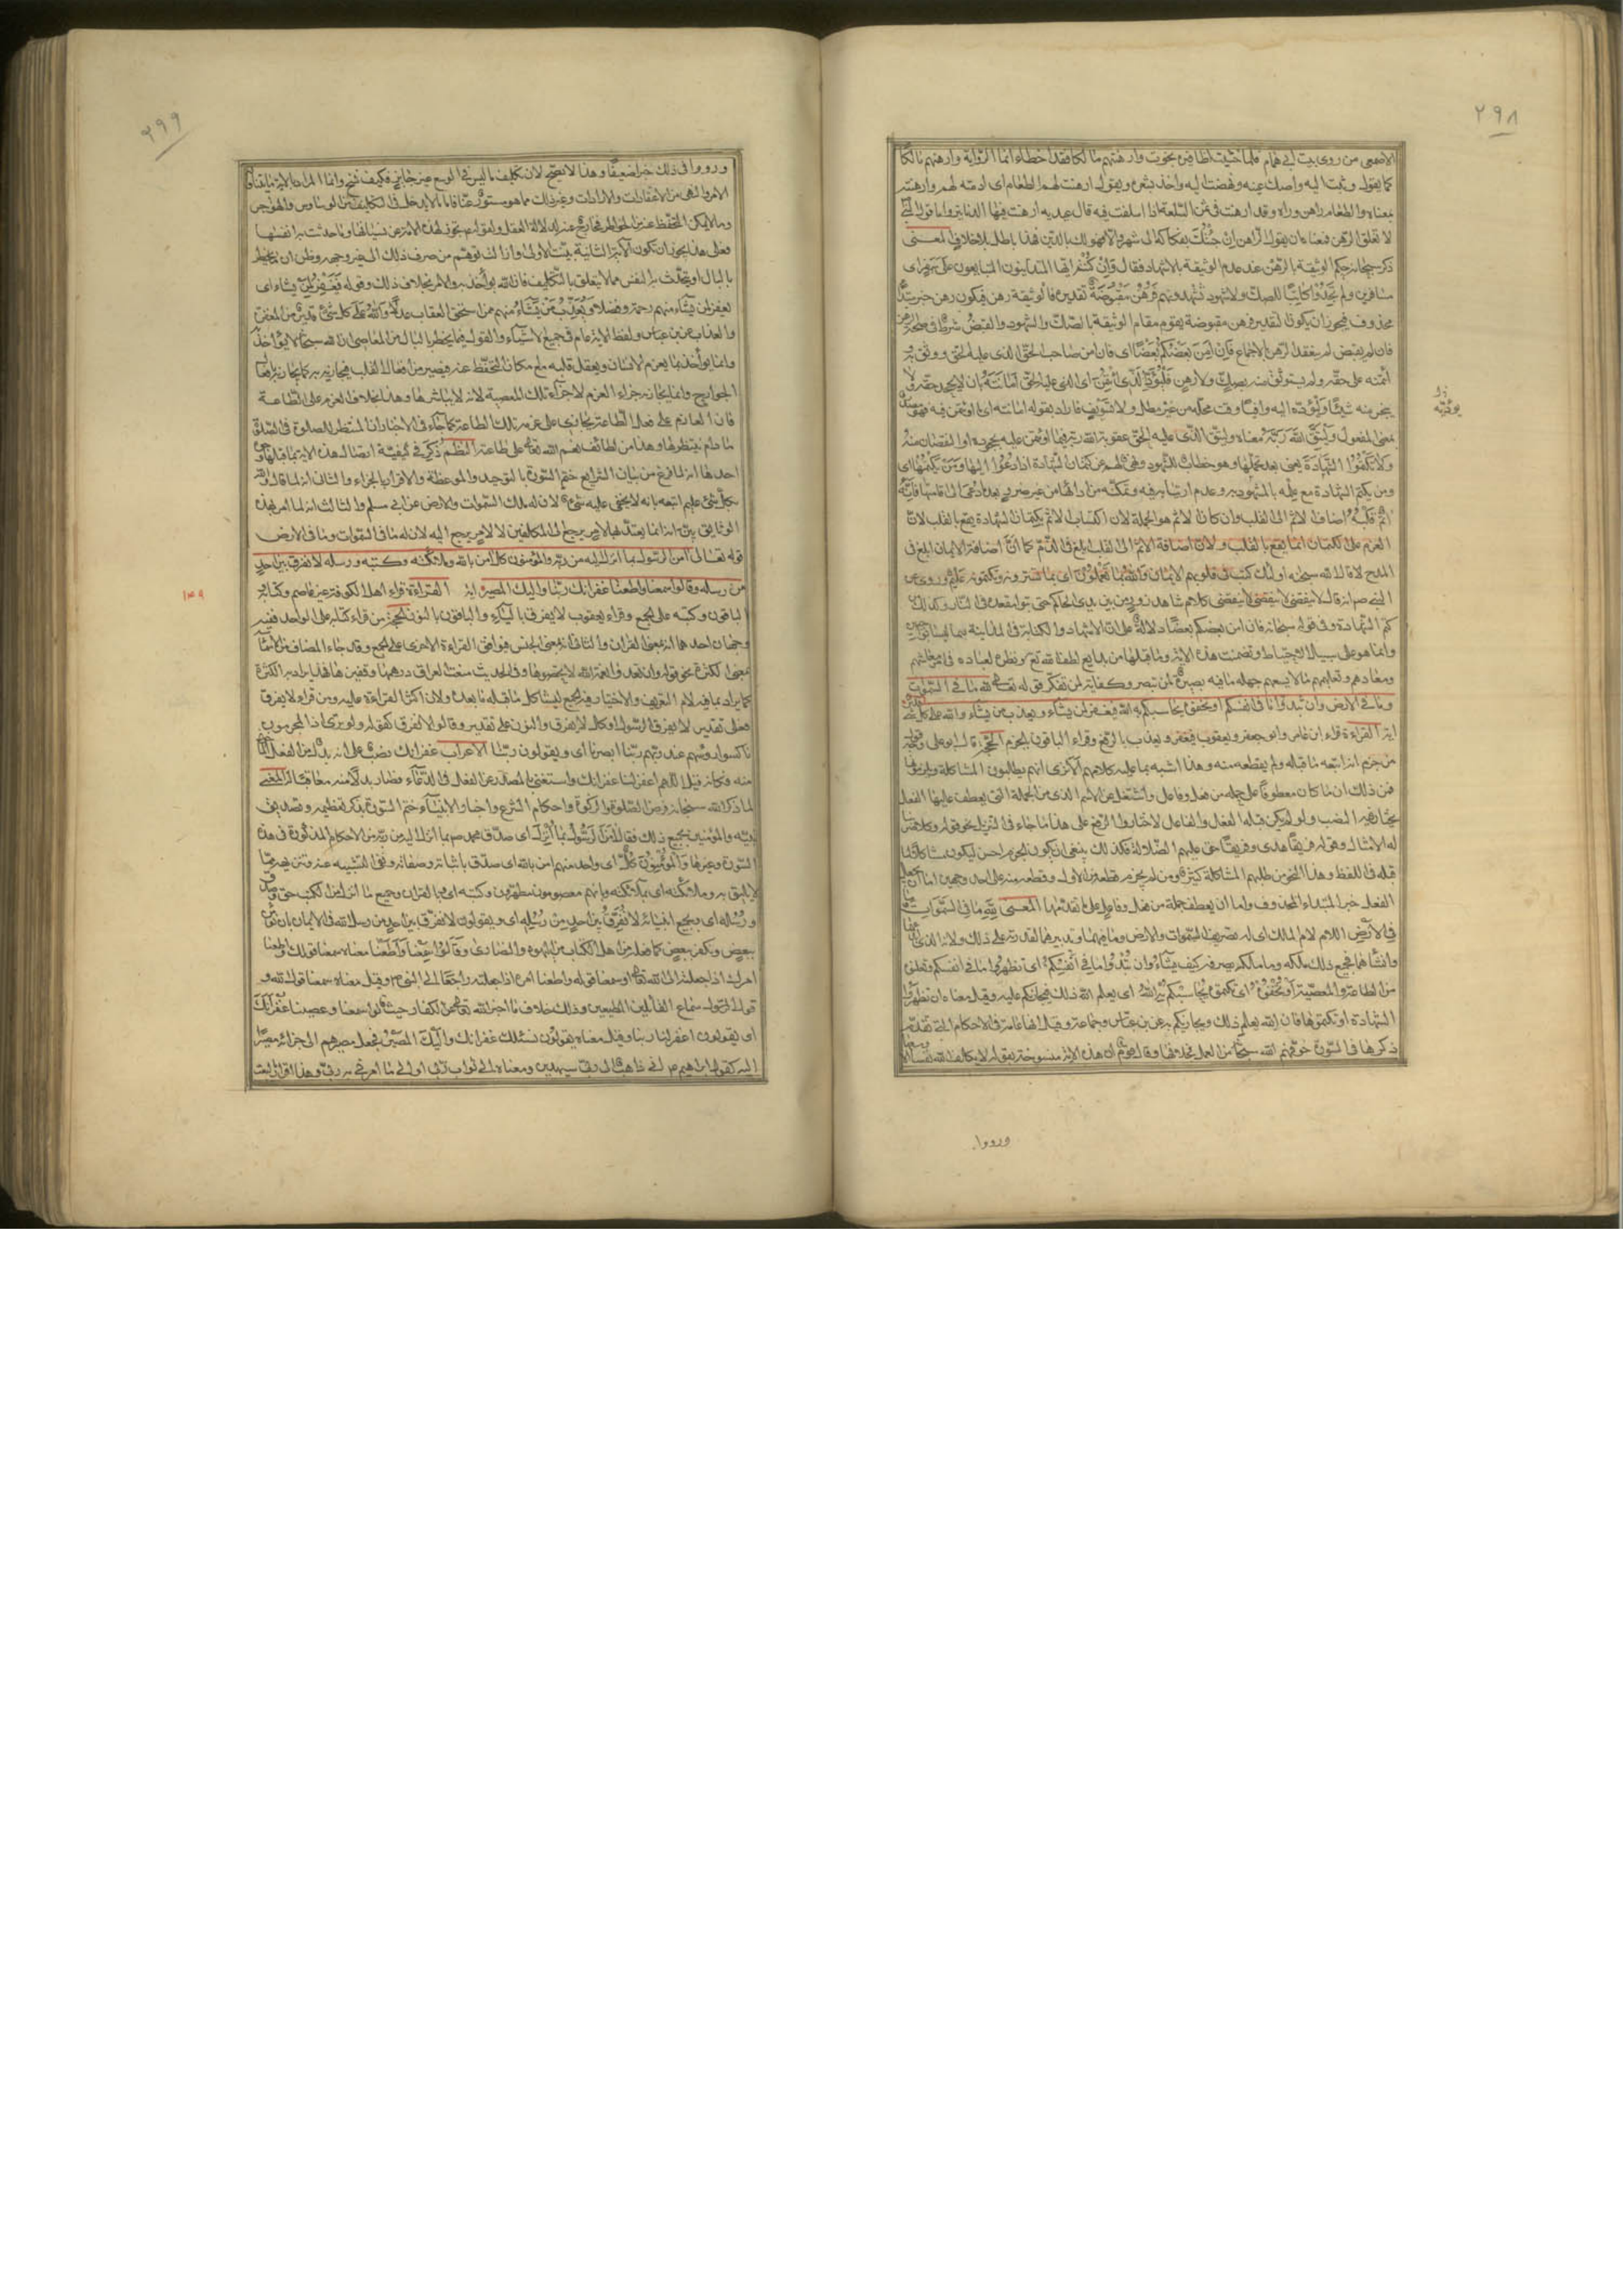 ٢٩٨
الاصمعي من روى بيت ابن همام فلما خشيت اظافيرهم نجوت وارهنتهم مالكا فقد اخطاء انما الرواية وارهنهم مالكا
كما يقول وثبت اليه واصك عينه ونهضت اليه واخذ بشعره ويقول ارهنت لهم الطعام اى ادمته لهم وارهنته
بمعناه والطعام راهن وراه وقد ارهنت فى ثمن السلعة اذا اسلفت فيه قال عيدية ارهنت فيها الدنانير واما قول النبي
لا تغلق الرهن فمعناه ان يقول الراهن ان جئتك بفكاكه الى شهر والا فهو لك بالدين فهذا باطل بلا خلاف المعنى
ذكر سبحانه حكم الوثيقة بالرهن عند عدم الوثيقة بالاشهاد فقال وان كنتم ايها المتداينون المتبايعون على سفر اى
مسافرين ولم تجدوا كاتبا للصك ولا شهودا تشهدونهم فرهن مقبوضة تقديره فالوثيقة رهن فيكون رهن خبر مبتدأ
محذوف فيجوز ان يكون التقدير فرهن مقبوضة يقوم مقام الوثيقة بالصك والشهود والقبض شرط فى صحة الرهن
فان لم يقبض لم ينعقد الرهن بالاجماع فان امن بعضكم بعضا اى فان امن صاحب الحق الذى عليه الحق ووثق به و
ائتمنه على حقه ولم يستوثق منه بصك ولا رهن فليؤد الذى ائتمن اى الذى عليه الحق امانته بان لا يجحد حقه ولا
يبخس منه شيئا ويؤديه اليه وافيا وقت محله من غير مطل ولا تسويف فاراد بقوله امانته اى ما اؤتمن فيه فهو مصدر
بمعنى المفعول وليتق الله ربه معناه وليتق الذى عليه الحق عقوبة الله ربه فيما اؤتمن عليه بجحوده او النقصان منه
ولا تكتموا الشهادة يعنى بعد تحملها وهو خطاب للشهود ونهى لهم عن كتمان الشهادة اذا دعوا اليها ومن يكتمها اى
ومن يكتم الشهادة مع علمه بالمشهود به وعدم ارتيابه فيه وتمكنه من ادائها من غير ضرر بعد ما دعى الى اقامتها فانه
اثم قلبه اضاف الاثم الى القلب وان كان الاثم هو الجملة لان اكتساب الاثم بكتمان الشهادة يقع بالقلب لان
العزم على الكتمان انما يقع بالقلب ولان اضافة الاثم الى القلب ابلغ فى الذم كما ان اضافة الايمان ابلغ فى
المدح لا قال الله سبحانه اولئك كتب فى قلوبهم الايمان والله بما تعملون اى بما تسرونه وتكتمونه عليم وروى عن
النبى ص انه قال لا ينقضى لا ينقضى كلام شاهد زور من بين يدى الحاكم حتى يتبوأ مقعده فى النار وكذلك من
كتم الشهادة وفى قوله سبحانه فان امن بعضكم بعضا دلالة على ان الاشهاد والكتابة فى المداينة ليسا بواجبين
وانما هو على سبيل الاحتياط وتضمنت هذه الاية وما قبلها من بدايع لطف الله تع ونظره لعباده فى امر معاشهم
ومعادهم وتعليمهم ما لا يسعهم جهله ما فيه بصيرة لمن تبصر وكفاية لمن تفكر قوله تعالى لله ما فى السموات
وما فى الارض وان تبدوا ما فى انفسكم او تخفوه يحاسبكم به الله فيغفر لمن يشاء ويعذب من يشاء والله على كل شى قدير
اية القراءة قراء ابن عامر وابو جعفر ويعقوب فيغفر ويعذب بالرفع وقراء الباقون بالجزم الحجة قال ابو على وجه قول
من جزم انه اتبعه ما قبله ولم يقطعه منه وهذا اشبه بما عليه كلامهم الا ترى انهم يطلبون المشاكلة
فمن ذلك ان ما كان معطوفا على جملة من فعل وفاعل واشتغل عن الاسم الذى من الجملة التى يعطف عليها الفعل
يختار فيه النصب ولو لم يكن قبله الفعل والفاعل لاختاروا الرفع على هذا ما جاء فى التنزيل نحو قوله وكلا ضربنا
له الامثال وقوله فريقا هدى وفريقا حق عليهم الضلالة فكذلك ينبغى ان يكون الجزم احسن ليكون مشاكلا لما
قبله فى اللفظ وهذا النحو من طلبهم المشاكلة كثير ومن لم يجزم قطعه من الاول وقطعه منه على احد وجهين اما ان يجعل
الفعل خبرا لمبتداء المحذوف واما ان يعطف جملة من فعل وفاعل على ما تقدمها المعنى لله ما فى السموات وما
فى الارض اللام لام الملك اى له تصريف السموات والارض وما فيهما وتدبيرهما لقدرته على ذلك ولانه الذى خلقهما
وانشأهما فجميع ذلك ملكه وما ملكه يصرفه كيف يشاء وان تبدوا ما فى انفسكم اى تظهروا ما فى انفسكم وتعلنوه
من الطاعة والمعصية او تخفوه اى تكتموه يحاسبكم به الله اى يعلم الله ذلك فيجازيكم عليه وقيل معناه ان تظهروا
الشهادة او تكتموها فان الله يعلم ذلك ويجازيكم به عن ابن عباس وجماعة وقيل انها عامة فى الاحكام التى تقدم
ذكرها فى السورة خوفهم الله سبحانه من العمل بخلافها وقال قوم ان هذه الاية منسوخة بقوله لا يكلف الله نفسا الا وسعها
ورووا
٢٩٩
ورووا فى ذلك خبرا ضعيفا وهذا لا يصح لان تكليف ما ليس فى الوسع غير جائز فكيف ينسخ وانما المراد بالاية ما يتناوله
الامر والنهى من الاعتقادات والارادات وغير ذلك مما هو مستور عنا فاما ما لا يدخل فى التكليف من الوساوس والهواجس
وما لا يمكن التحفظ عنه من الخواطر فخارج عنه لدلالة العقل ولقوله ع تجوز لهذه الامة عن نسيانها وما حدثت به انفسها
فعلى هذا يجوز ان تكون الاية الثانية بينت الاولى وازالت توهم من صرف ذلك الى غير وجهه وظن ان ما يخطر
بالبال او تتحدث به النفس مما لا يتعلق بالتكليف فان الله يؤاخذ به والامر بخلاف ذلك وقوله فيغفر لمن يشاء اى
يغفر لمن يشاء منهم رحمة وفضلا ويعذب من يشاء منهم ممن استحق العقاب عدلا والله على كل شئ قدير من المغفرة
والعذاب عن ابن عباس ولفظ الاية عام فى جميع الاشياء والقول فيما يخطر بالبال من المعاصى ان الله سبحانه لا يؤاخذ به
وانما يؤاخذ بما يعزم الانسان ويعقد قلبه مع امكان التحفظ عنه فيصير من افعال القلب فيجازيه به كما يجازيه بافعال
الجوارح وانما يجازيه جزاء العزم لا جزاء تلك المعصية لانه لا يباشرها وهذا بخلاف العزم على الطاعة
فان العازم على فعل الطاعة يجازى على عزمه تلك الطاعة كما جاء فى الاخبار ان المنتظر للصلوة فى الصلوة
ما دام ينتظرها وهذا من لطائف نعم الله تعالى على طاعته النظم ذكر فى كيفية اتصال هذه الاية بما قبلها وجوه
احدها انه لما فرغ من بيان الشرايع ختم السورة بالتوحيد والموعظة والاقرار بالجزاء والثانى انه لما قال الله
بكل شئ عليم اتبعه بانه لا يخفى عليه شئ لان له ملك السموات والارض عن ابى مسلم والثالث انه لما امر بهذه
الوثايق بين انه انما يعتد بها لامر يرجع الى المكلفين لا لامر يرجع اليه لان له ما فى السموات وما فى الارض
قوله تعالى امن الرسول بما انزل اليه من ربه والمؤمنون كل امن بالله وملائكته وكتبه ورسله لا نفرق بين احد
من رسله وقالوا سمعنا واطعنا غفرانك ربنا واليك المصير اية القراءة قراء اهل الكوفة غير عاصم وكتابه و
الباقون وكتبه على الجمع وقراء يعقوب لا يفرق بالياء والباقون بالنون الحجة من قراء كتابه على الواحد ففيه
وجهان احدهما انه بمعنى القران والثانى انه بمعنى الجنس فيوافق القراءة الاخرى على الجمع وقد جاء المضاف من الاسماء
بمعنى الكثرة نحو قوله وان تعدوا نعمة الله لا تحصوها وفى الحديث منعت العراق درهمها وقفيزها فهذا يراد به الكثرة
كما يراد بما فيه لام التعريف والاختيار فيه الجمع ليشاكل ما قبله وما بعده ولان اكثر القراءة عليه ومن قراء لا يفرق
فعلى تقدير لا يفرق الرسول او كل لا يفرق والنون على تقدير وقالوا لا نفرق كقوله ولو ترى اذ المجرمون
ناكسوا رؤسهم عند ربهم ربنا ابصرنا اى ويقولون ربنا الاعراب غفرانك نصب على انه بدل من الفعل المأخوذ
منه وكانه قيل اللهم اغفر لنا غفرانك واستغنى بالمصدر عن الفعل فى الدعاء فصار بدلا منه معاقبا له المعنى
لما ذكر الله سبحانه فرض الصلوة والزكوة واحكام الشرع واخبار الانبياء ختم السورة بذكر تعظيمه وتصديق
نبيه والمؤمنين بجميع ذلك فقال امن الرسول بما انزل اى صدق محمد ص بما انزل اليه من ربه من الاحكام المذكورة فى هذه
السورة وغيرها والمؤمنون كل اى واحد منهم امن بالله اى صدق باثباته وصفاته ونفى التشبيه عنه وتنزيهه عما
لا يليق به وملائكته اى بملائكته وبانهم معصومون مطهرون وكتبه اى بالقران وجميع ما انزل من الكتب حق وصدق
ورسله اى وبجميع انبيائه لا نفرق بين احد من رسله اى ويقولون لا نفرق بين احد من رسل الله فى الايمان بان نؤمن
ببعض ونكفر ببعض كما فعل من اهل الكتاب من اليهود والنصارى وقالوا سمعنا واطعنا معناه سمعنا قولك واطعنا
امرك اذ اجعلته الى الله تعالى او سمعنا قوله واطعنا امره اذا جعلته راجعا الى النبى ص وقيل معناه سمعنا قول الله و
قول الرسول سماع القائلين المطيعين وذلك خلاف ما اخبر الله تعالى عن الكفار حيث قالوا سمعنا وعصينا غفرانك
اى يقولون اغفر لنا ربنا وقيل معناه يقولون نسئلك غفرانك واليك المصير فجعل مصيرهم الى جزائه مصيرا
اليه كقول ابراهيم ع انى ذاهب الى ربى سيهدين ومعناه الى ثواب ربى او الى ما امرنى به ربى وهذا اقرار بالبعث